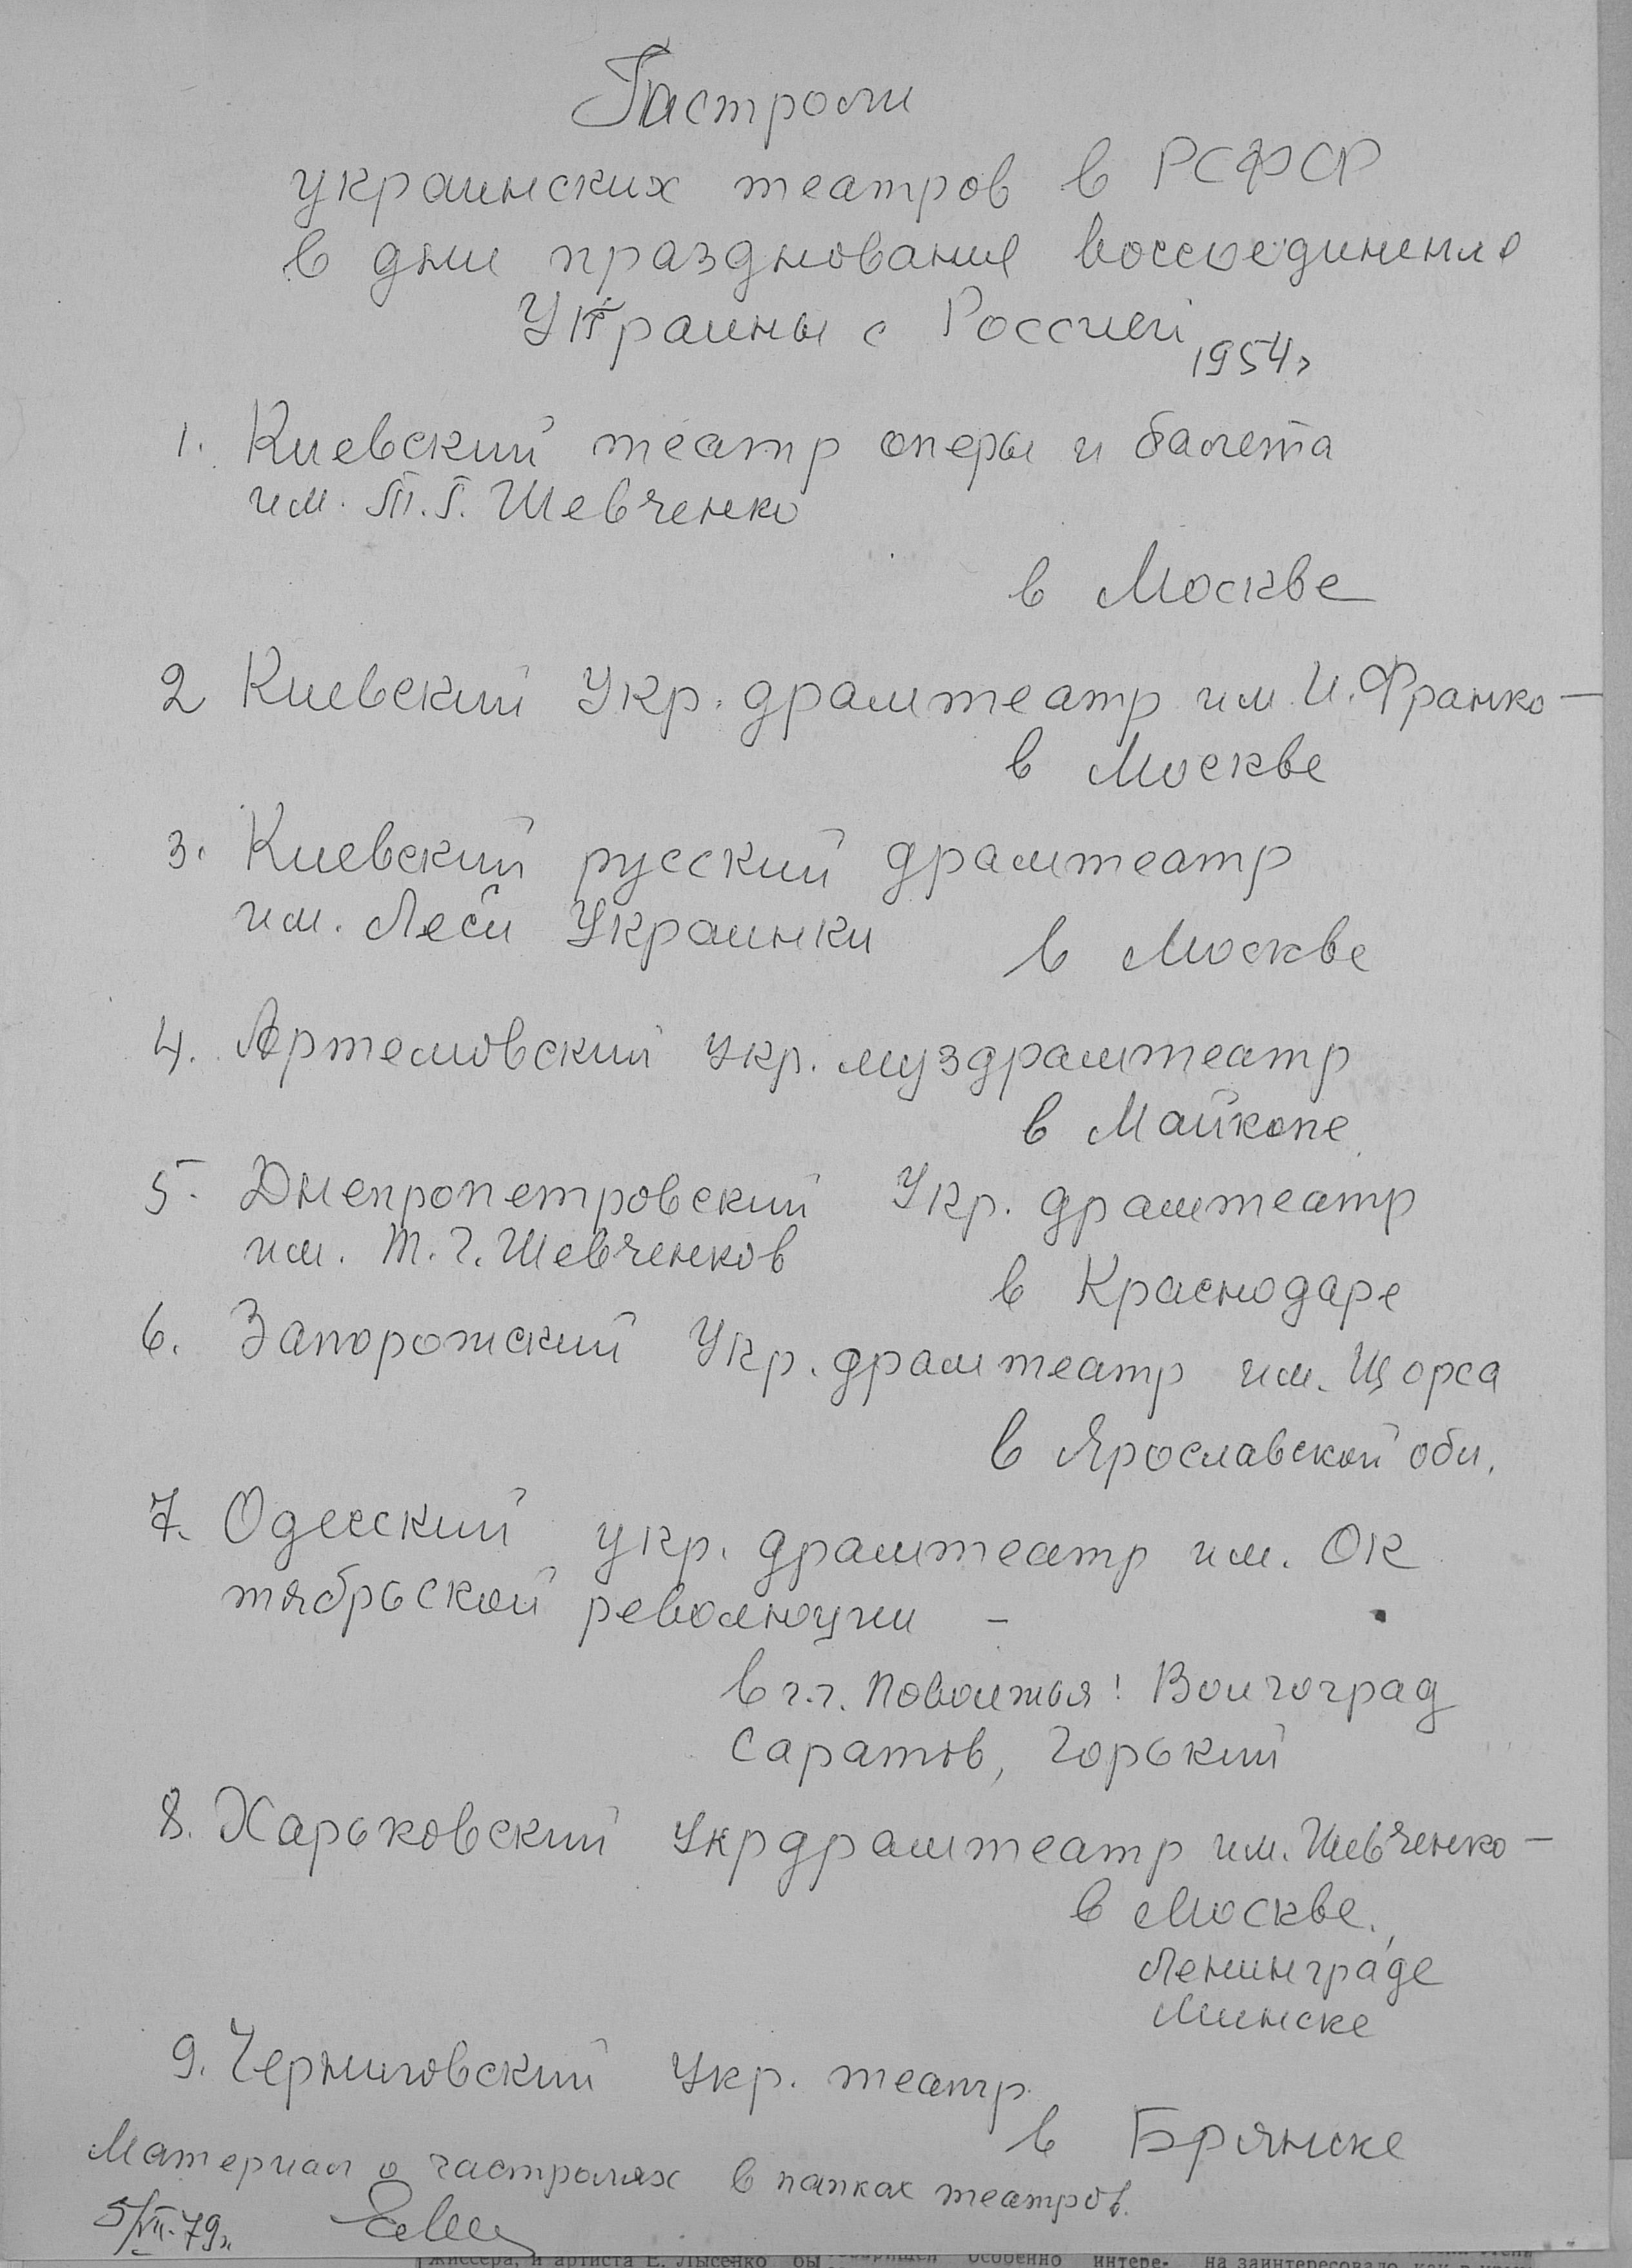 Гастроли
украинских театров в РСФСР
в дни празднования воссоединения
Украины с Россией 1954г
1. Киевский театр оперы и балета
им. Т.Г. Шевченко
в Москве
2 Киевский Укр. драмтеатр им. И. Франко –
в Москве
3. Киевский русский драмтеатр
им. Леси Украинки в Москве
4. Артемовский укр. муздрамтеатр
в Майкопе
5. Днепропетровский Укр. драмтеатр
им. Т. Г. Шевченков
в Краснодаре
6. Запорожский Укр. драмтеатр им. Щорса
в Ярославской обл.
7. Одесский укр. драмтеатр им. Ок
тябрьской революции –
в г.г. Поволжья: Волгоград
Саратов, Горький
8. Харьковский Укрдрамтеатр им. Шевченко –
в Москве,
Ленинграде
Минске
9. Черниговский Укр. театр
в Брянске
Материал о гастролях в папках театров.
5/VII-79г.
жиссера, и артиста Е. Лысенко бы особенно интере- на заинтересовало